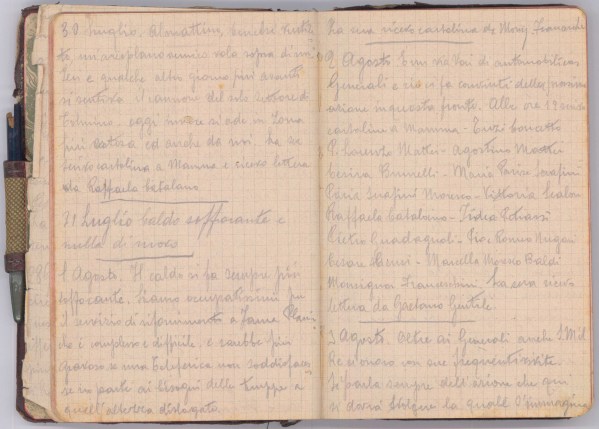 30 Luglio. Al mattino,
te un'areoplano nemico vola sopra di noi
e qualche altro giorno più avanti
si sentiva il cannone del solo settore di
Tolmino, oggi invece si ode in zona
più estesa ed anche da noi. La se
cartolina a Mamma e ricevo lettera
da Raffaele Catalano
31 Luglio Caldo soffocante e
nulla di nuovo
1 Agosto. Il caldo si fa sempre più
soffocante. Siamo occupatissimi per
il servizio di rifornimento a
da è complesso e difficile, e sarebbe più
gravoso se una Teleferica non soddisfaces
se in parte ai bisogni delle truppe a
quell'altezza dislocate.
La sera ricevo cartolina da Mons.
2 Agosto. E un via vai di automobili con
Generali e ciò ci fa convinti della prossima
azione in questa fronte. Alle ore 19
cartoline a Mamma - Concetto
P. Lorenzo Mattei - Agostino Mattei
Brunelli - Maria Serafini
Serafini - Vittoria
Raffaele Catalano -
Pietro Guadagnoli -
Cesare - Marcello Baldi
Monsignor. La sera ricevo
lettera da Gaetano Gentile.
3 Agosto. Oltre ai Generali anche S.M. il
Re ci onora con sue frequenti visite.
Si parla sempre dell'azione che qui
si dovrà svolgere la quale s'immagina